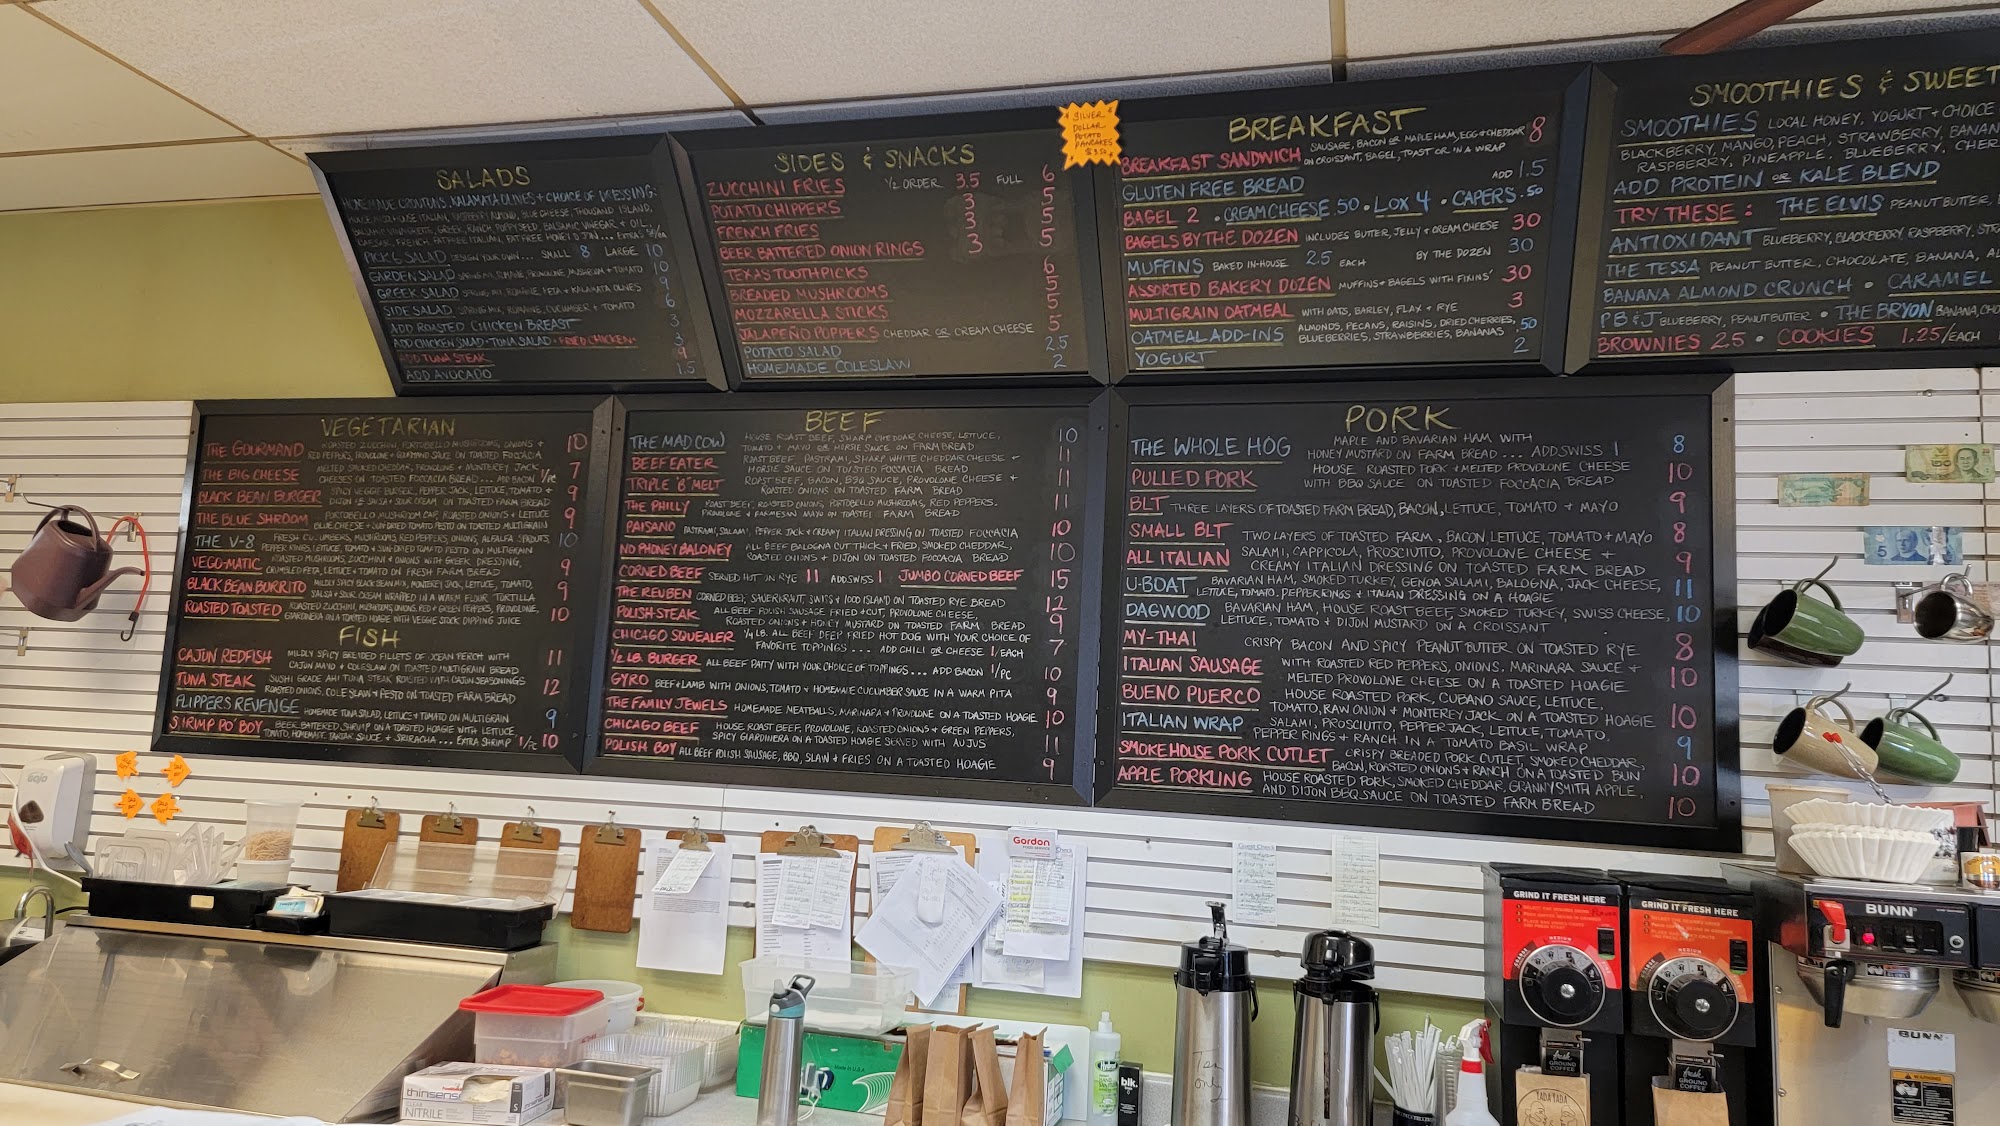 SALADS
HOMEMADE CROUTONS, KALAMATA OLIVES + CHOICE OF DRESSING:
HOUSE ITALIAN, RASPBERRY ALMOND, BLUE CHEESE, THOUSAND ISLAND,
BALSAMIC VINAIGRETTE, GREEK, RANCH, POPPYSEED, BALSAMIC VINEGAR + OIL,
CAESAR, FRENCH, FAT FREE ITALIAN, FAT FREE HONEY DIJON... EXTRA'S .50/EA
PICK 6 SALAD DESIGN YOUR OWN... SMALL 8 LARGE 10
GARDEN SALAD SPRING MIX, ROMAINE, PROVOLONE, MUSHROOM + TOMATO 10
GREEK SALAD SPRING MIX, ROMAINE, FETA + KALAMATA OLIVES 9
SIDE SALAD SPRING MIX, ROMAINE, CUCUMBER + TOMATO 6
ADD ROASTED CHICKEN BREAST 3
ADD CHICKEN SALAD • TUNA SALAD • FRIED CHICKEN • 3
ADD TUNA STEAK 9
ADD AVOCADO 1.5
SIDES & SNACKS
ZUCCHINI FRIES 1/2 ORDER 3.5 FULL 6
POTATO CHIPPERS 3 5
FRENCH FRIES 3 5
BEER BATTERED ONION RINGS 3 5
TEXAS TOOTHPICKS 6
BREADED MUSHROOMS 5
MOZZARELLA STICKS 5
JALAPEÑO POPPERS CHEDDAR OR CREAM CHEESE 5
POTATO SALAD 2.5
HOMEMADE COLESLAW 2
SILVER
DOLLAR
POTATO
PANCAKES
$3.50
BREAKFAST
BREAKFAST SANDWICH SAUSAGE, BACON OR MAPLE HAM, EGG + CHEDDAR 8
ON CROISSANT, BAGEL, TOAST OR IN A WRAP
GLUTEN FREE BREAD ADD 1.5
BAGEL 2 • CREAM CHEESE .50 • LOX 4 • CAPERS .50
BAGELS BY THE DOZEN INCLUDES BUTTER, JELLY + CREAM CHEESE 30
MUFFINS BAKED IN-HOUSE 2.5 EACH BY THE DOZEN 30
ASSORTED BAKERY DOZEN MUFFINS + BAGELS WITH FIXINS' 30
MULTIGRAIN OATMEAL WITH OATS, BARLEY, FLAX + RYE 3
OATMEAL ADD-INS ALMONDS, PECANS, RAISINS, DRIED CHERRIES, .50
BLUEBERRIES, STRAWBERRIES, BANANAS
YOGURT 2
SMOOTHIES & SWEET
SMOOTHIES LOCAL HONEY, YOGURT + CHOICE
BLACKBERRY, MANGO, PEACH, STRAWBERRY, BANAN
RASPBERRY, PINEAPPLE, BLUEBERRY, CHER
ADD PROTEIN OR KALE BLEND
TRY THESE: THE ELVIS PEANUT BUTTER,
ANTIOXIDANT BLUEBERRY, BLACKBERRY, RASPBERRY, STRA
THE TESSA PEANUT BUTTER, CHOCOLATE, BANANA, AL
BANANA ALMOND CRUNCH • CARAMEL
PB & J BLUEBERRY, PEANUT BUTTER • THE BRYON BANANA, CHO
BROWNIES 2.5 • COOKIES 1.25/EACH
VEGETARIAN
THE GOURMAND ROASTED ZUCCHINI, PORTOBELLO MUSHROOMS, ONIONS + 10
RED PEPPERS, PROVOLONE + GOURMAND SAUCE ON TOASTED FOCCACIA
THE BIG CHEESE MELTED SMOKED CHEDDAR, PROVOLONE + MONTEREY JACK 7
CHEESES ON TOASTED FOCCACIA BREAD... ADD BACON 1/PC
BLACK BEAN BURGER SPICY VEGGIE BURGER, PEPPER JACK, LETTUCE, TOMATO + 9
DIJON & SALSA + SOUR CREAM ON TOASTED FARM BREAD
THE BLUE SHROOM PORTOBELLO MUSHROOM CAP, ROASTED ONIONS + LETTUCE 9
BLUE CHEESE + SUN-DRIED TOMATO PESTO ON TOASTED MULTIGRAIN
THE V-8 FRESH CUCUMBERS, MUSHROOMS, RED PEPPERS, ONIONS, ALFALFA SPROUTS, 10
PEPPER RINGS, LETTUCE, TOMATO + SUN-DRIED TOMATO PESTO ON MULTIGRAIN
VEGO-MATIC ROASTED MUSHROOMS, ZUCCHINI & ONIONS WITH GREEK DRESSING, 9
CRUMBLED FETA, LETTUCE + TOMATO ON FRESH FARM BREAD
BLACK BEAN BURRITO MILDLY SPICY BLACK BEAN MIX, MONTEREY JACK, LETTUCE, TOMATO, 9
SALSA + SOUR CREAM WRAPPED IN A WARM FLOUR TORTILLA
ROASTED TOASTED ROASTED ZUCCHINI, MUSHROOMS, ONIONS, RED + GREEN PEPPERS, PROVOLONE, 10
GIARDINERA ON A TOASTED HOAGIE WITH VEGGIE STOCK DIPPING JUICE
FISH
CAJUN REDFISH MILDLY SPICY BREADED FILLETS OF OCEAN PERCH WITH 11
CAJUN MAYO + COLESLAW ON TOASTED MULTIGRAIN BREAD
TUNA STEAK SUSHI GRADE AHI TUNA STEAK ROASTED WITH CAJUN SEASONINGS 12
ROASTED ONIONS, COLE SLAW + PESTO ON TOASTED FARM BREAD
FLIPPERS REVENGE HOMEMADE TUNA SALAD, LETTUCE + TOMATO ON MULTIGRAIN 9
SHRIMP PO' BOY BEER BATTERED SHRIMP ON A TOASTED HOAGIE WITH LETTUCE,
TOMATO, HOMEMADE TARTAR SAUCE + SRIRACHA... EXTRA SHRIMP 1/PC 10
BEEF
THE MAD COW HOUSE ROAST BEEF, SHARP CHEDDAR CHEESE, LETTUCE, 10
TOMATO + MAYO OR HORSIE SAUCE ON FARM BREAD
BEEFEATER ROAST BEEF, PASTRAMI, SHARP WHITE CHEDDAR CHEESE + 11
HORSIE SAUCE ON TOASTED FOCCACIA BREAD
TRIPLE 'B' MELT ROAST BEEF, BACON, BBQ SAUCE, PROVOLONE CHEESE + 11
ROASTED ONIONS ON TOASTED FARM BREAD
THE PHILLY ROAST BEEF, ROASTED ONIONS, PORTOBELLO MUSHROOMS, RED PEPPERS, 11
PROVOLONE + PARMESAN MAYO ON TOASTED FARM BREAD
PAISANO PASTRAMI, SALAMI, PEPPER JACK + CREAMY ITALIAN DRESSING ON TOASTED FOCCACCIA 10
NO PHONEY BALONEY ALL BEEF BALOGNA CUT THICK + FRIED, SMOKED CHEDDAR, 10
ROASTED ONIONS + DIJON ON TOASTED FOCCACIA BREAD
CORNED BEEF SERVED HOT ON RYE 11 ADD SWISS 1 JUMBO CORNED BEEF 15
THE REUBEN CORNED BEEF, SAUERKRAUT, SWISS + 1000 ISLAND ON TOASTED RYE BREAD 12
POLISH-STEAK ALL BEEF POLISH SAUSAGE FRIED + CUT, PROVOLONE CHEESE, 9
ROASTED ONIONS + HONEY MUSTARD ON TOASTED FARM BREAD
CHICAGO SQUEALER 1/4 LB. ALL BEEF DEEP FRIED HOT DOG WITH YOUR CHOICE OF 7
FAVORITE TOPPINGS... ADD CHILI OR CHEESE 1/EACH
1/2 LB. BURGER ALL BEEF PATTY WITH YOUR CHOICE OF TOPPINGS... ADD BACON 1/PC 10
GYRO BEEF + LAMB WITH ONIONS, TOMATO + HOMEMADE CUCUMBER SAUCE IN A WARM PITA 9
THE FAMILY JEWELS HOMEMADE MEATBALLS, MARINARA + PROVOLONE ON A TOASTED HOAGIE 10
CHICAGO BEEF HOUSE ROAST BEEF, PROVOLONE, ROASTED ONIONS + GREEN PEPPERS, 11
SPICY GIARDINERA ON A TOASTED HOAGIE SERVED WITH AU JUS
POLISH BOY ALL BEEF POLISH SAUSAGE, BBQ, SLAW & FRIES ON A TOASTED HOAGIE 9
PORK
THE WHOLE HOG MAPLE AND BAVARIAN HAM WITH 8
HONEY MUSTARD ON FARM BREAD... ADD SWISS 1
PULLED PORK HOUSE ROASTED PORK + MELTED PROVOLONE CHEESE 10
WITH BBQ SAUCE ON TOASTED FOCCACIA BREAD
BLT THREE LAYERS OF TOASTED FARM BREAD, BACON, LETTUCE, TOMATO + MAYO 9
SMALL BLT TWO LAYERS OF TOASTED FARM, BACON, LETTUCE, TOMATO + MAYO 8
ALL ITALIAN SALAMI, CAPPICOLA, PROSCIUTTO, PROVOLONE CHEESE + 9
CREAMY ITALIAN DRESSING ON TOASTED FARM BREAD
U-BOAT BAVARIAN HAM, SMOKED TURKEY, GENOA SALAMI, BALOGNA, JACK CHEESE, 11
LETTUCE, TOMATO, PEPPER RINGS + ITALIAN DRESSING ON A HOAGIE
DAGWOOD BAVARIAN HAM, HOUSE ROAST BEEF, SMOKED TURKEY, SWISS CHEESE, 10
LETTUCE, TOMATO + DIJON MUSTARD ON A CROISSANT
MY-THAI CRISPY BACON AND SPICY PEANUT BUTTER ON TOASTED RYE 8
ITALIAN SAUSAGE WITH ROASTED RED PEPPERS, ONIONS, MARINARA SAUCE + 10
MELTED PROVOLONE CHEESE ON A TOASTED HOAGIE
BUENO PUERCO HOUSE ROASTED PORK, CUBANO SAUCE, LETTUCE, 10
TOMATO, RAW ONION + MONTEREY JACK ON A TOASTED HOAGIE
ITALIAN WRAP SALAMI, PROSCIUTTO, PEPPER JACK, LETTUCE, TOMATO, 9
PEPPER RINGS + RANCH IN A TOMATO BASIL WRAP
SMOKEHOUSE PORK CUTLET CRISPY BREADED PORK CUTLET, SMOKED CHEDDAR, 10
BACON, ROASTED ONIONS + RANCH ON A TOASTED BUN
APPLE PORKLING HOUSE ROASTED PORK, SMOKED CHEDDAR, GRANNY SMITH APPLE, 10
AND DIJON BBQ SAUCE ON TOASTED FARM BREAD
GOJO
Gordon
FOOD SERVICE
Guest Check
GRIND IT FRESH HERE
MEDIUM
GRIND IT FRESH HERE
MEDIUM
BUNN
BUNN
WARNING
fresh
GROUND
COFFEE
fresh
GROUND
COFFEE
YADA YADA
Tea
only
blk.
Made in U.S.A.
thinsense
CLEAR
NITRILE
S
5